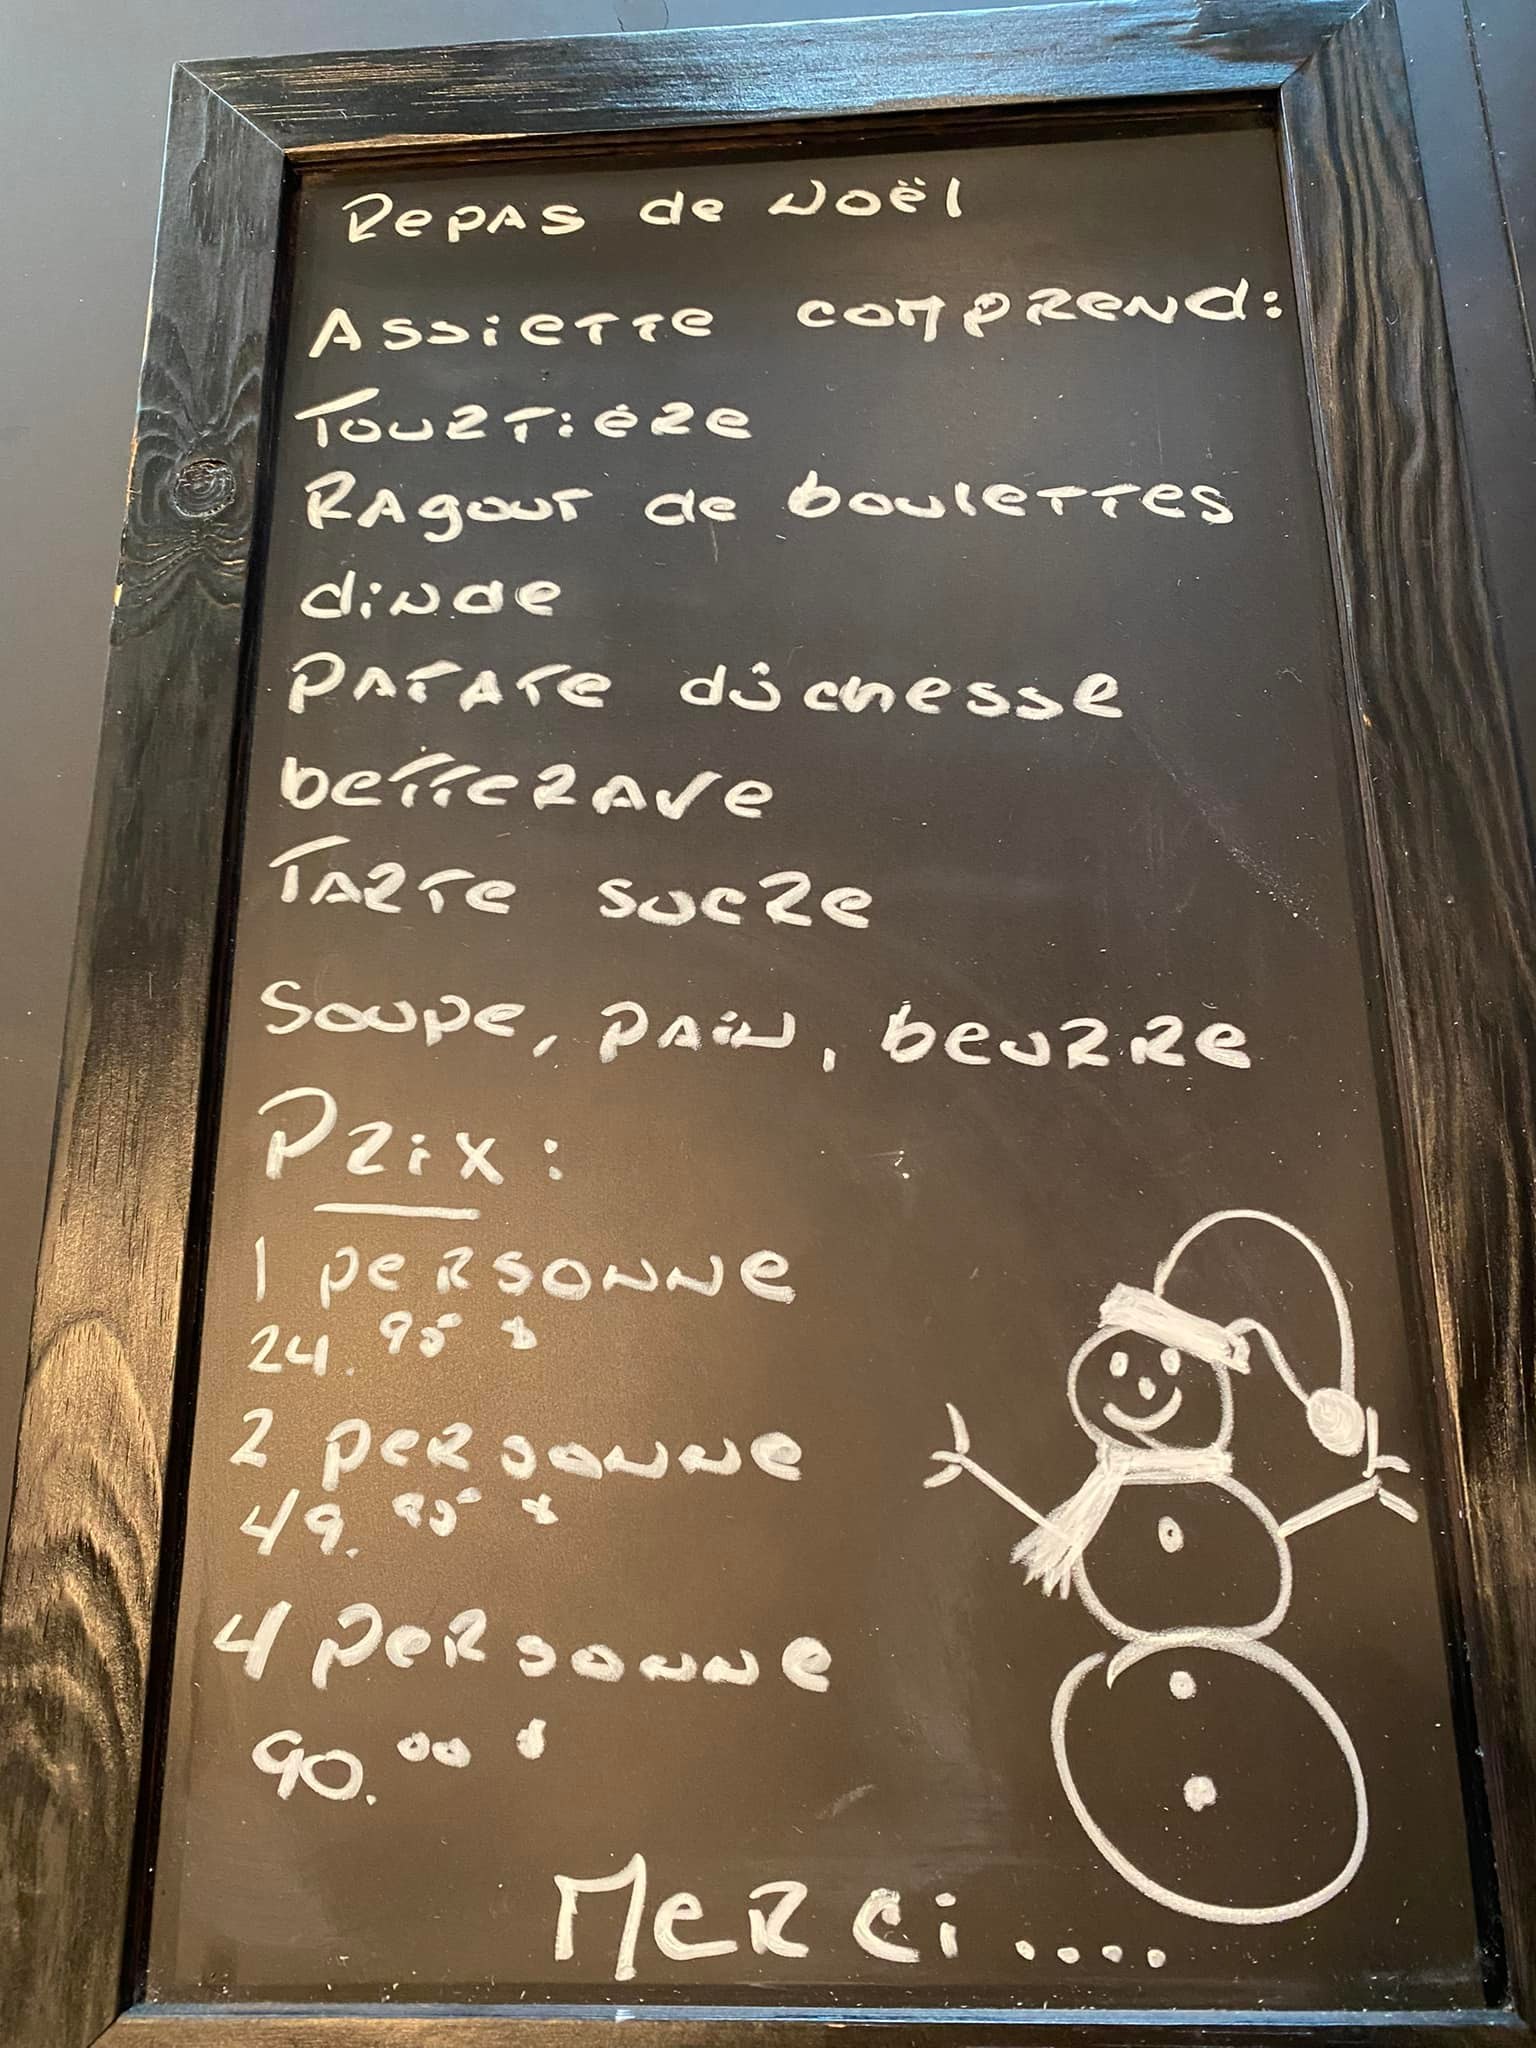 Repas de Noël
Assiette comprend:
Tourtiére
Ragout de boulettes
dinde
patate dûchesse
betterave
Tarte sucre
Soupe, pain, beurre
Prix:
1 personne
24.95 $
2 personne
49.95 $
4 personne
90.00 $
Merci....